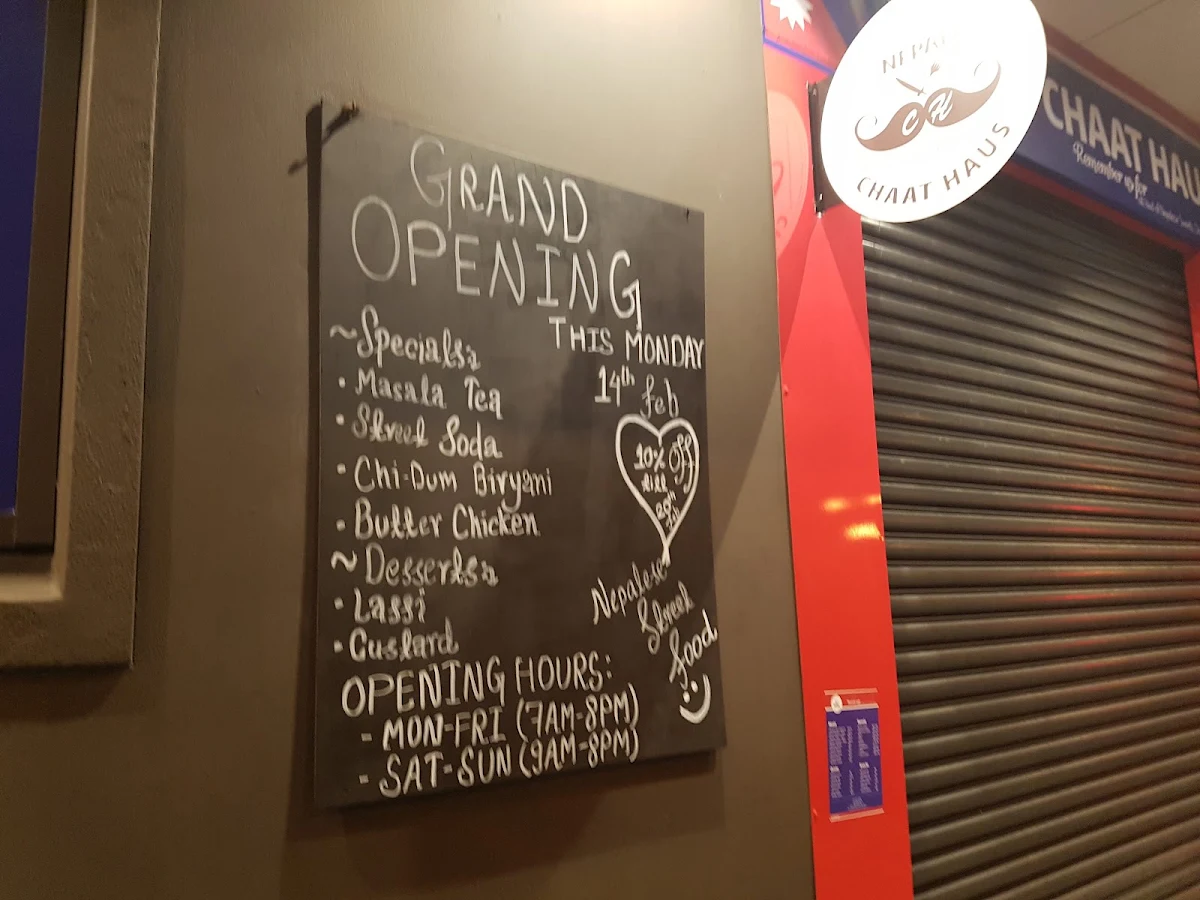 GRAND
OPENING
THIS MONDAY
14th feb
~Specials~
• Masala Tea
• Street Soda
• Chi-Dum Biryani
• Butter Chicken
~Desserts~
• Lassi
• Custard
10% Off
till
20th
feb
Nepalese
Street
food
OPENING HOURS:
- MON-FRI (7AM-8PM)
- SAT-SUN (9AM-8PM)
CH
CHAAT HAUS
CHAAT HAUS
Remember us for